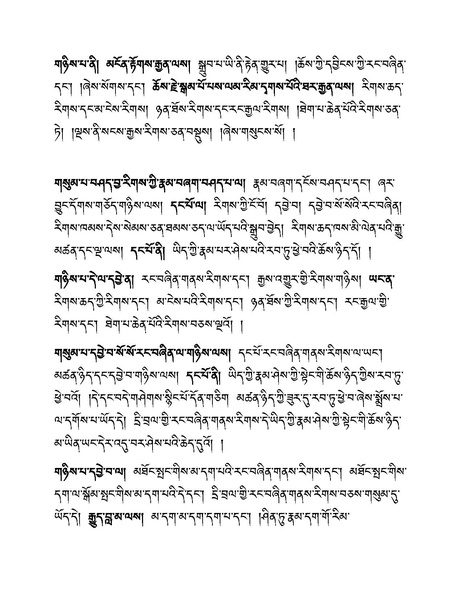 གཉིས་པ་ནི། མངོན་རྟོགས་རྒྱན་ལས། སྒྲུབ་པ་ཡི་ནི་རྟེན་གྱུར་པ། །ཆོས་ཀྱི་དབྱིངས་ཀྱི་རང་བཞིན་
དང༌། །ཞེས་སོགས་དང༌། ཆོས་རྗེ་སྒམ་པོ་པས་ལམ་རིམ་དྭགས་པོའི་ཐར་རྒྱན་ལས། རིགས་ཆད་
རིགས་དང་མ་ངེས་རིགས། ཉན་ཐོས་རིགས་དང་རང་རྒྱལ་རིགས། །ཐེག་པ་ཆེན་པོའི་རིགས་ཅན་
ཏེ། །ལྔས་ནི་སངས་རྒྱས་རིགས་ཅན་བསྡུས། །ཞེས་གསུངས་སོ། །
གསུམ་པ་བཤད་བྱ་རིགས་ཀྱི་རྣམ་བཞག་བཤད་པ་ལ། རྣམ་བཞག་དངོས་བཤད་པ་དང༌། ཞར་
བྱུང་དོགས་གཅོད་གཉིས་ལས། དང་པོ་ལ། རིགས་ཀྱི་ངོ་བོ། དབྱེ་བ། དབྱེ་བ་སོ་སོའི་རང་བཞིན།
རིགས་ཁམས་དེས་སེམས་ཅན་ཐམས་ཅད་ལ་ཡོད་པའི་སྒྲུབ་བྱེད། རིགས་ཆད་ཁས་མི་ལེན་པའི་རྒྱུ་
མཚན་དང་ལྔ་ལས། དང་པོ་ནི། ཡིད་ཀྱི་རྣམ་པར་ཤེས་པའི་རབ་ཏུ་ཕྱེ་བའི་ཆོས་ཉིད་དོ། །
གཉིས་པ་དེ་ལ་དབྱེ་ན། རང་བཞིན་གནས་རིགས་དང༌། རྒྱས་འགྱུར་གྱི་རིགས་གཉིས། ཡང་ན་
རིགས་ཆད་ཀྱི་རིགས་དང༌། མ་ངེས་པའི་རིགས་དང༌། ཉན་ཐོས་ཀྱི་རིགས་དང༌། རང་རྒྱལ་གྱི་
རིགས་དང༌། ཐེག་པ་ཆེན་པོའི་རིགས་བཅས་ལྔའོ། །
གསུམ་པ་དབྱེ་བ་སོ་སོ་རང་བཞིན་ལ་གཉིས་ལས། དང་པོ་རང་བཞིན་གནས་རིགས་ལ་ཡང༌།
མཚན་ཉིད་དང་དབྱེ་བ་གཉིས་ལས། དང་པོ་ནི། ཡིད་ཀྱི་རྣམ་ཤེས་ཀྱི་སྟེང་གི་ཆོས་ཉིད་ཀྱིས་རབ་ཏུ་
ཕྱེ་བའོ། །དེ་དང་བདེ་གཤེགས་སྙིང་པོ་དོན་གཅིག མཚན་ཉིད་ཀྱི་ཟུར་དུ་རབ་ཏུ་ཕྱེ་བ་ཞེས་སྨོས་པ་
ལ་དགོས་པ་ཡོད་དེ། དྲི་བྲལ་གྱི་རང་བཞིན་གནས་རིགས་དེ་ཡིད་ཀྱི་རྣམ་ཤེས་ཀྱི་སྟེང་གི་ཆོས་ཉིད་
མ་ཡིན་ཡང་དེར་འདུ་བར་ཤེས་པའི་ཆེད་དུའོ། །
གཉིས་པ་དབྱེ་བ་ལ། མཐོང་སྤང་གིས་མ་དག་པའི་རང་བཞིན་གནས་རིགས་དང༌། མཐོང་སྤང་གིས་
དག་ལ་སྒོམ་སྤང་གིས་མ་དག་པའི་དེ་དང༌། དྲི་བྲལ་གྱི་རང་བཞིན་གནས་རིགས་བཅས་གསུམ་དུ་
ཡོད་དེ། རྒྱུད་བླ་མ་ལས། མ་དག་མ་དག་དག་པ་དང༌། །ཤིན་ཏུ་རྣམ་དག་གོ་རིམ་